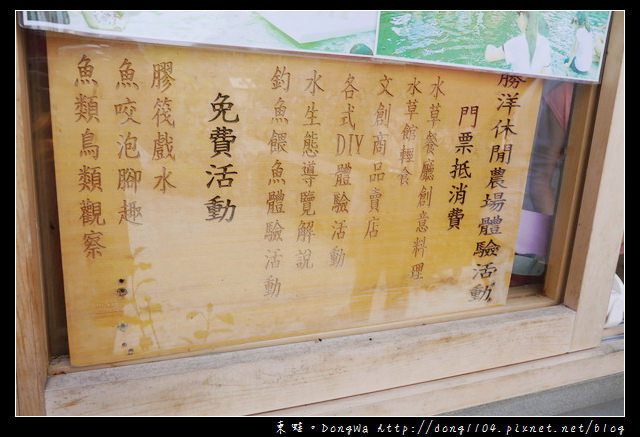 勝洋休閒農場體驗活動
門票抵消費
水草餐廳創意料理
水草館輕食
文創商品賣店
各式DIY體驗活動
水生態導覽解說
釣魚餵魚體驗活動
免費活動
膠筏戲水
魚咬泡腳趣
魚類鳥類觀察
東蛙。DONGWA HTTP://DONG1104.PIXNET.NET/BLOG